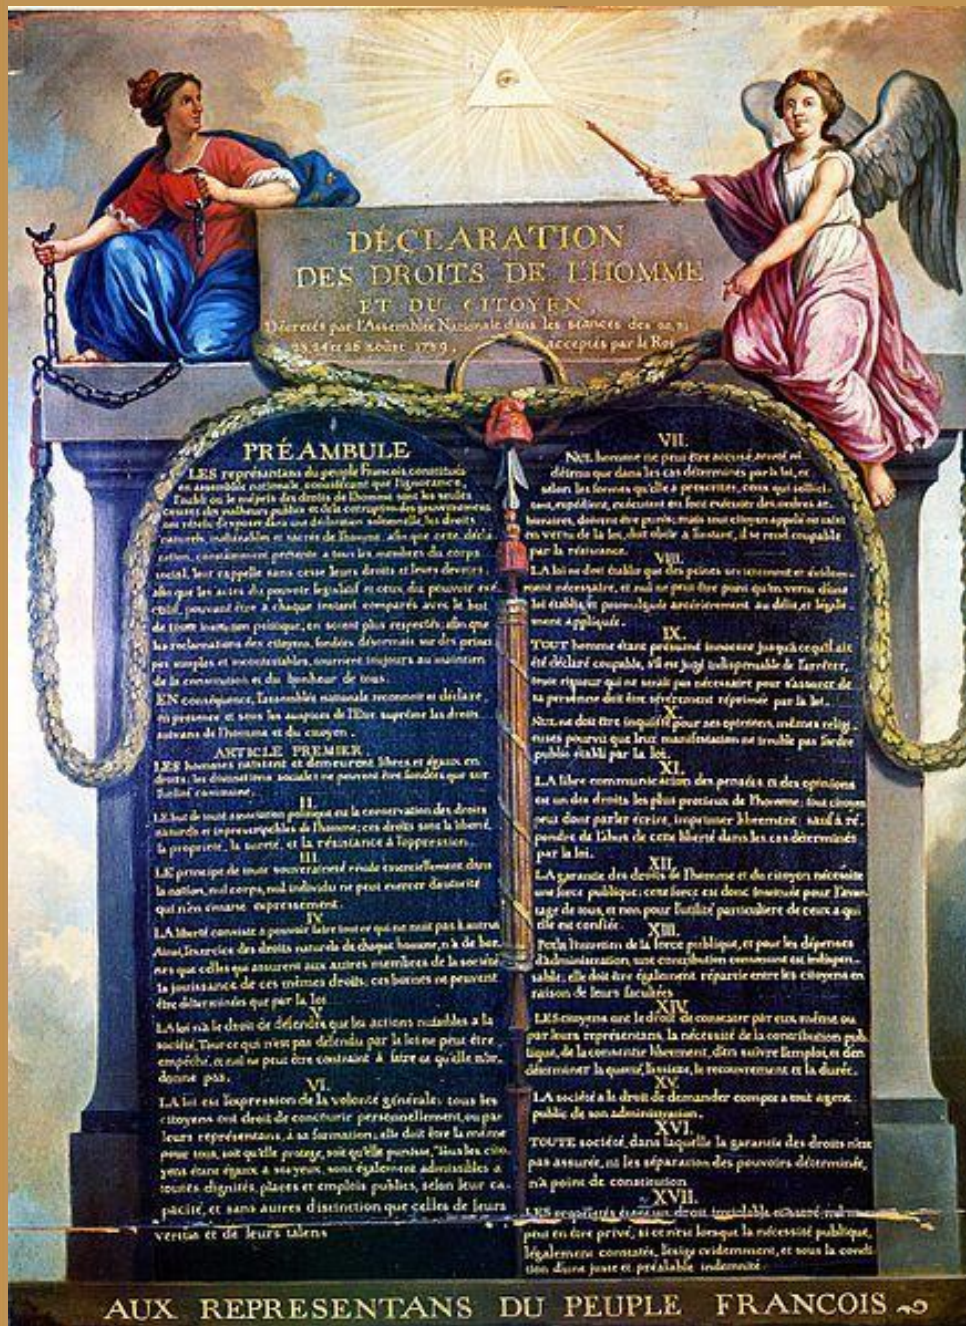 DÉCLARATION
DES DROITS DE L'HOMME
ET DU CITOYEN
Décretés par l'Assemblée Nationale dans les séances des 20, 21
23, 24 et 26 août 1789, acceptés par le Roi
PRÉAMBULE
LES représentans du peuple François, constitués
en assemblée nationale, considérant que l'ignorance,
l'oubli ou le mépris des droits de l'homme sont les seules
causes des malheurs publics et de la corruption des gouvernemens
ont résolu d'exposer dans une déclaration solemnelle, les droits
naturels, inaliénables et sacrés de l'homme, afin que cette décla-
ration, constamment présente a tous les membres du corps
social, leur rappelle sans cesse leurs droits et leurs devoirs,
afin que les actes du pouvoir législatif et ceux du pouvoir exé-
cutif, pouvant être a chaque instant comparés avec le but
de toute institution politique, en soient plus respectés; afin que
les réclamations des citoyens, fondées désormais sur des princi-
pes simples et incontestables, tournent toujours au maintien
de la constitution et du bonheur de tous.
EN conséquence, l'assemblée nationale reconnoit et déclare,
en presence et sous les auspices de l'Etre suprême les droits
suivans de l'homme et du citoyen.
ARTICLE PREMIER.
LES hommes naissent et demeurent libres et égaux en
droits; les distinctions sociales ne peuvent être fondées que sur
l'utilité commune.
II.
LE but de toute association politique est la conservation des droits
naturels et imprescriptibles de l'homme; ces droits sont la liberté,
la propriété, la sureté, et la résistance à l'oppression.
III.
LE principe de toute souveraineté réside essentiellement dans
la nation, nul corps, nul individu ne peut exercer d'autorité
qui n'en émane expressement.
IV.
LA liberté consiste a pouvoir faire tout ce qui ne nuit pas à autrui
Ainsi, l'exercice des droits naturels de chaque homme, n'a de bor-
nes que celles qui assurent aux autres membres de la société
la jouissance de ces mêmes droits; ces bornes ne peuvent
être déterminées que par la loi
V.
LA loi n'a le droit de défendre que les actions nuisibles a la
société. Tout ce qui n'est pas défendu par la loi ne peut être
empêché, et nul ne peut être contraint à faire ce qu'elle n'or-
donne pas.
VI.
LA loi est l'expression de la volonté générale; tous les
citoyens ont droit de concourir personnellement, ou par
leurs représentans, à sa formation; elle doit être la même
pour tous, soit qu'elle protege, soit qu'elle punisse. Tous les cito-
yens étans égaux à ses yeux, sont également admissibles a
toutes dignités, places et emplois publics, selon leur ca-
pacité, et sans autres distinction que celles de leurs
vertus et de leurs talens
VII.
NUL homme ne peut être accusé, arreté ni
détenu que dans les cas déterminés par la loi, et
selon les formes qu'elle a prescrites, ceux qui sollici-
tent, expédient, exécutent ou font exécuter des ordres ar-
bitraires, doivent être punis; mais tout citoyen appelé ou saisi
en vertu de la loi, doit obéir a l'instant, il se rend coupable
par la résistance.
VIII.
LA loi ne doit établir que des peines strictement et évidem-
ment nécessaire, et nul ne peut être puni qu'en vertu d'une
loi établie et promulguée antérieurement au délit, et légale-
ment appliquée.
IX.
TOUT homme étant présumé innocent jusqu'a ce qu'il ait
été déclaré coupable, s'il est jugé indispensable de l'arrêter,
toute rigueur qui ne serait pas nécessaire pour s'assurer de
sa personne doit être sévèrement réprimée par la loi.
X.
NUL ne doit être inquiété pour ses opinions, mêmes religi-
euses pourvu que leur manifestation ne trouble pas l'ordre
public établi par la loi.
XI.
LA libre communication des pensées et des opinions
est un des droits les plus precieux de l'homme; tout citoyen
peut donc parler écrire, imprimer librement: sauf à ré-
pondre de l'abus de cette liberté dans les cas déterminés
par la loi.
XII.
LA garantie des droits de l'homme et du citoyen nécessite
une force publique; cette force est donc instituée pour l'avan-
tage de tous, et non pour l'utilité particulière de ceux a qui
elle est confiée.
XIII.
Pour l'entretien de la force publique, et pour les dépenses
d'administration, une contribution commune est indispen-
sable; elle doit être également répartie entre les citoyens en
raison de leurs facultées
XIV.
LES citoyens ont le droit de constater par eux même ou
par leurs représentans, la nécessité de la contribution pub-
lique, de la consentir librement, d'en suivre l'emploi, et d'en
déterminer la quotité, l'assiette, le recouvrement et la durée.
XV.
LA société a le droit de demander compte a tout agent
public de son administration.
XVI.
TOUTE société, dans laquelle la garantie des droits n'est
pas assurée, ni les séparation des pouvoirs déterminée,
n'a point de constitution
XVII.
LES propriétés étant un droit inviolable et sacré, nul ne
peut en être privé, si ce n'est lorsque la nécessité publique,
légalement constatée, l'exige evidemment, et sous la condi-
tion d'une juste et préalable indemnité
AUX REPRESENTANS DU PEUPLE FRANCOIS